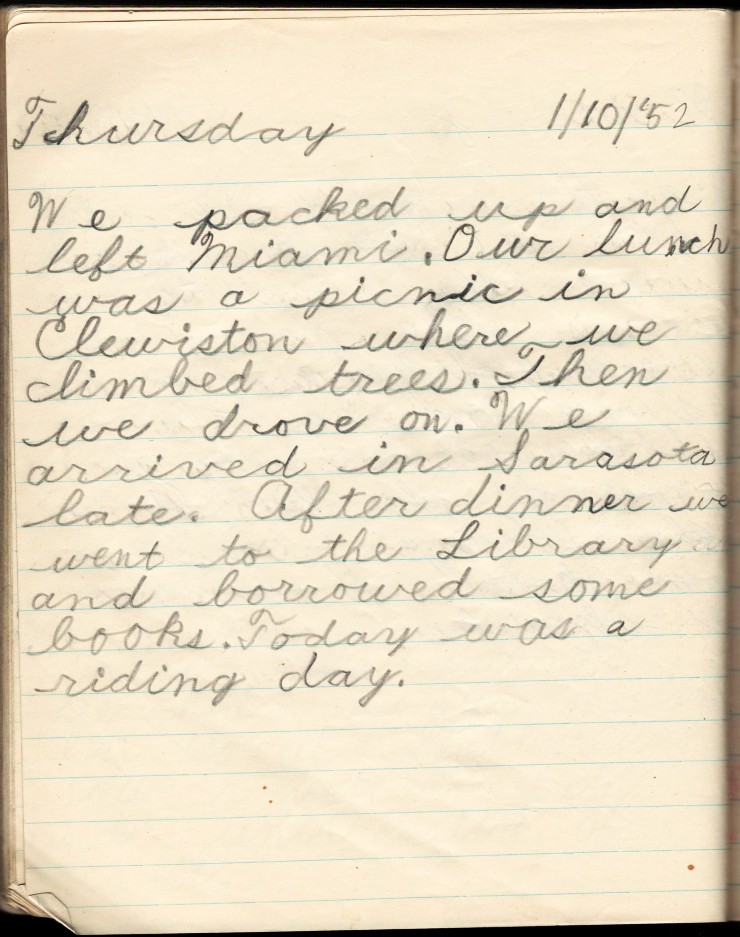 Thursday 1/10/'52
We packed up and
left Miami. Our lunch
was a picnic in
Clewiston where we
climbed trees. Then
we drove on. We
arrived in Sarasota
late. After dinner we
went to the Library
and borrowed some
books. Today was a
riding day.